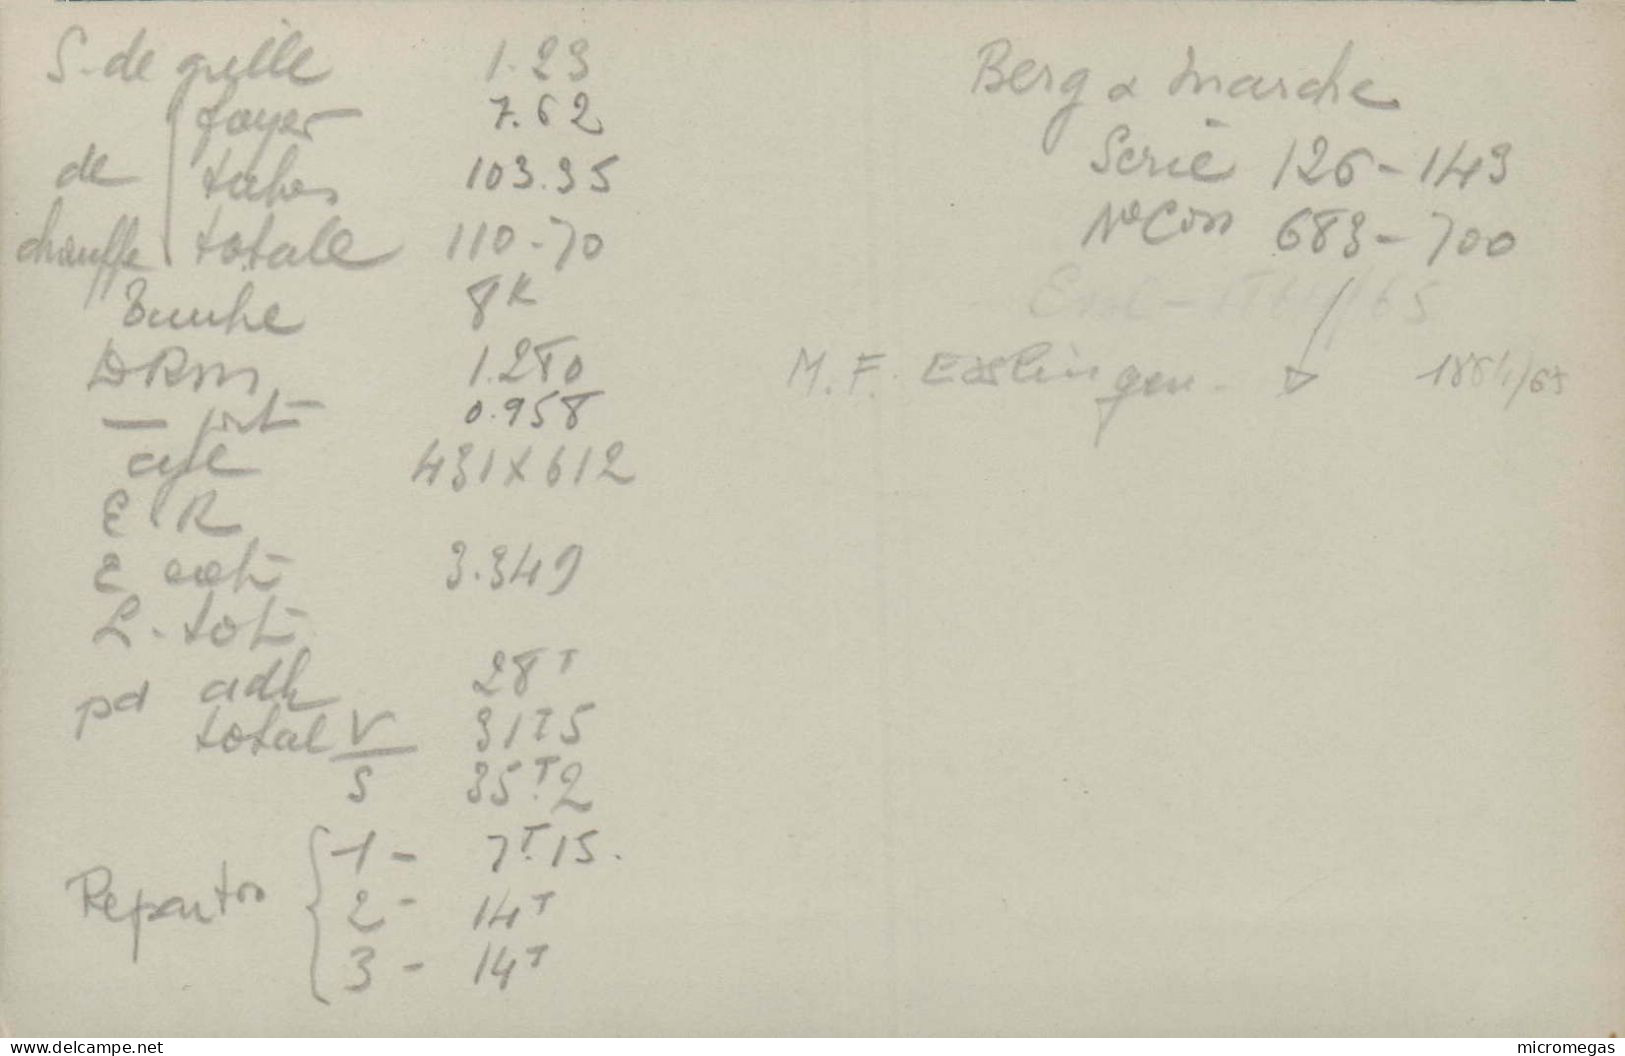 S. de grille 1.23
foyer 7.62
de tubes 103.35
chauffe totale 110-70
Timbre 8K
DRm 1.280
— prt 0.958
cyl 431X612
E R
E ext 3.349
L. tot
pd adh 28T
total V 31T5
S 35T.2
Repartion 1 - 7T.15.
2 - 14T
3 - 14T
Berg & Marche
Serie 126-143
No Con 683-700
M. F. Esslingen. 1864/65
www.delcampe.net
micromegas